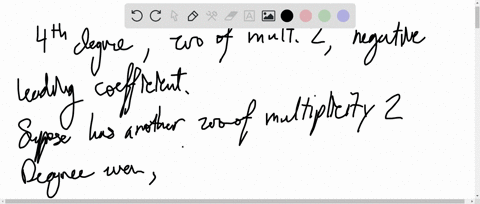 4th degree, zero of mult. 2, negative
leading coefficient.
Suppose has another zero of multiplicity 2
Degree even,